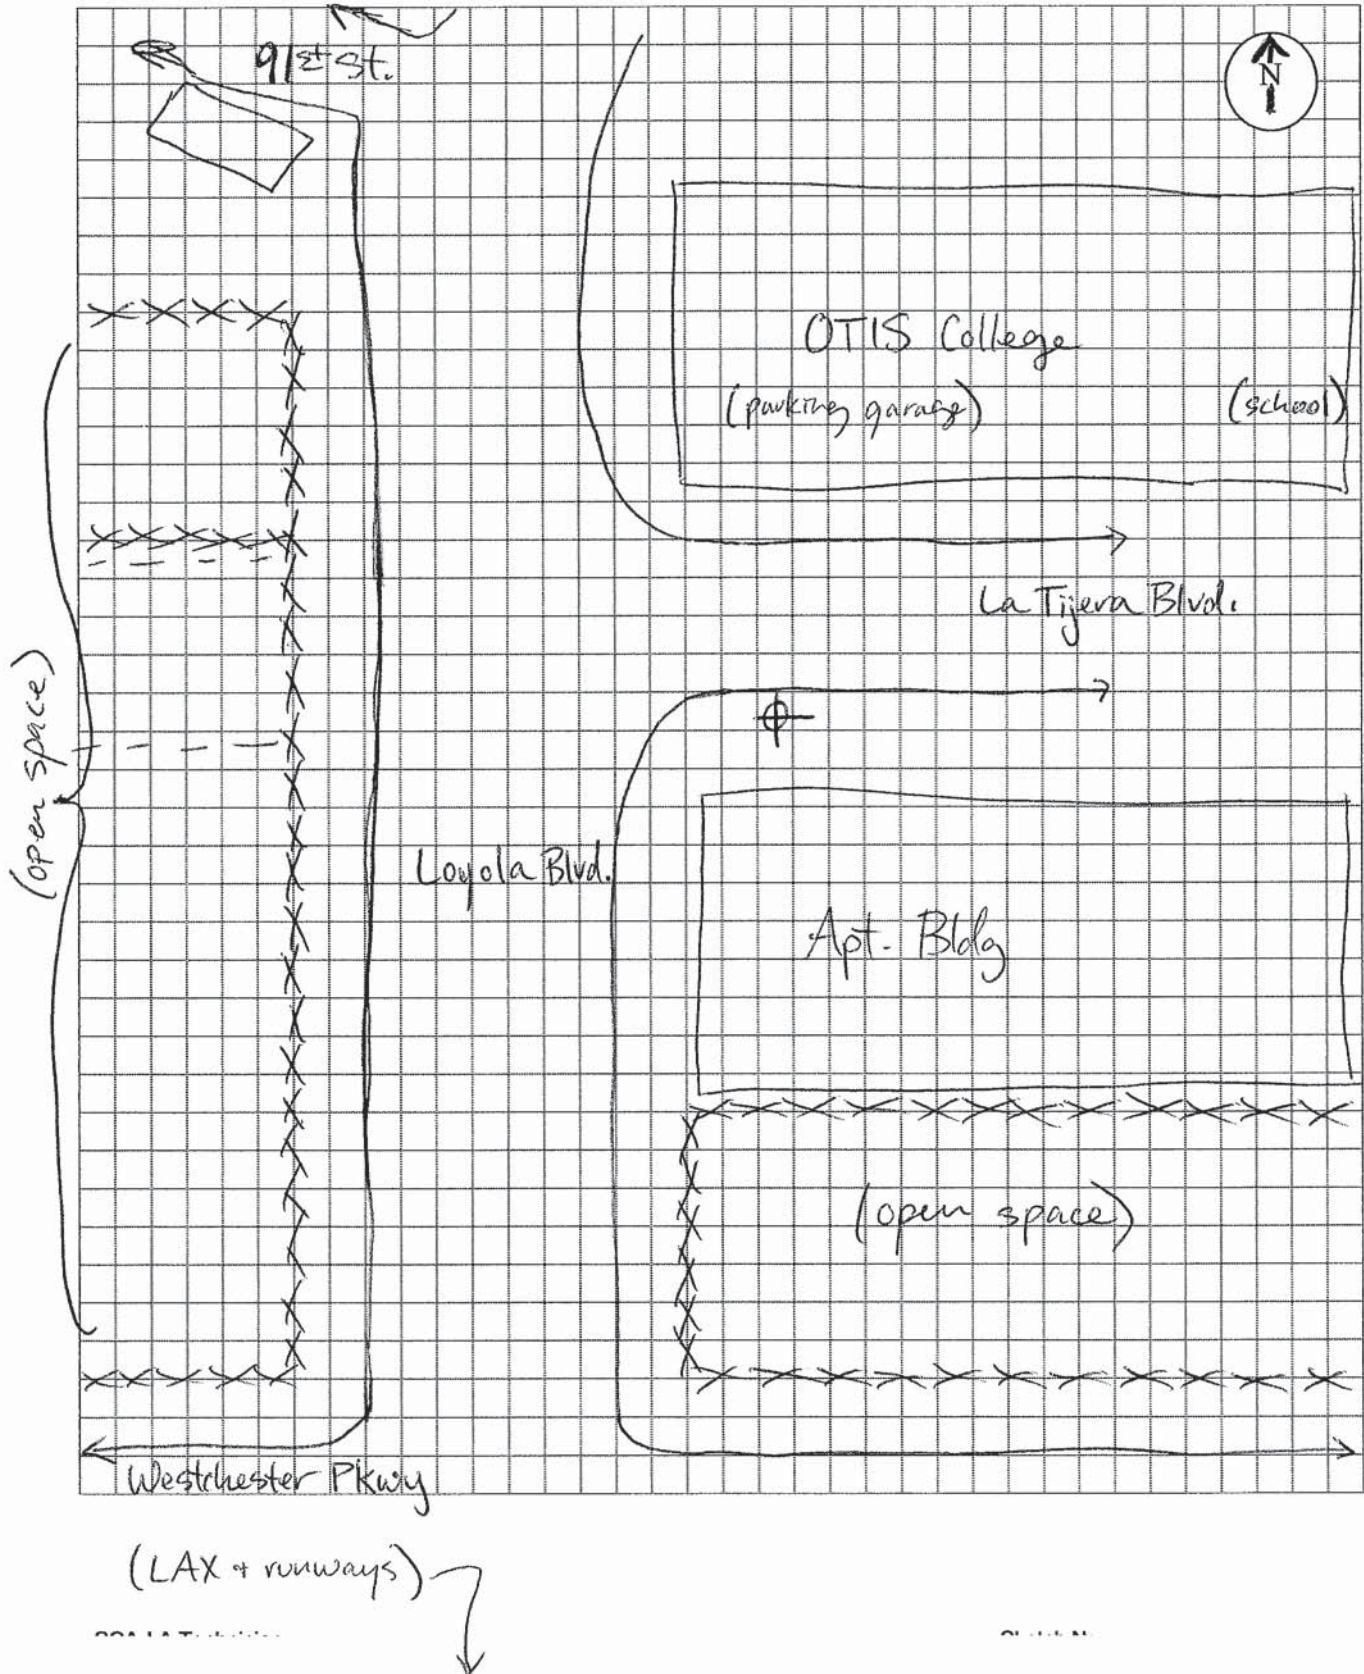 91st St.
N
OTIS College
(parking garage)
(school)
La Tijera Blvd.
(open space)
Loyola Blvd.
Apt. Bldg
(open space)
Westchester Pkwy
(LAX + runways)